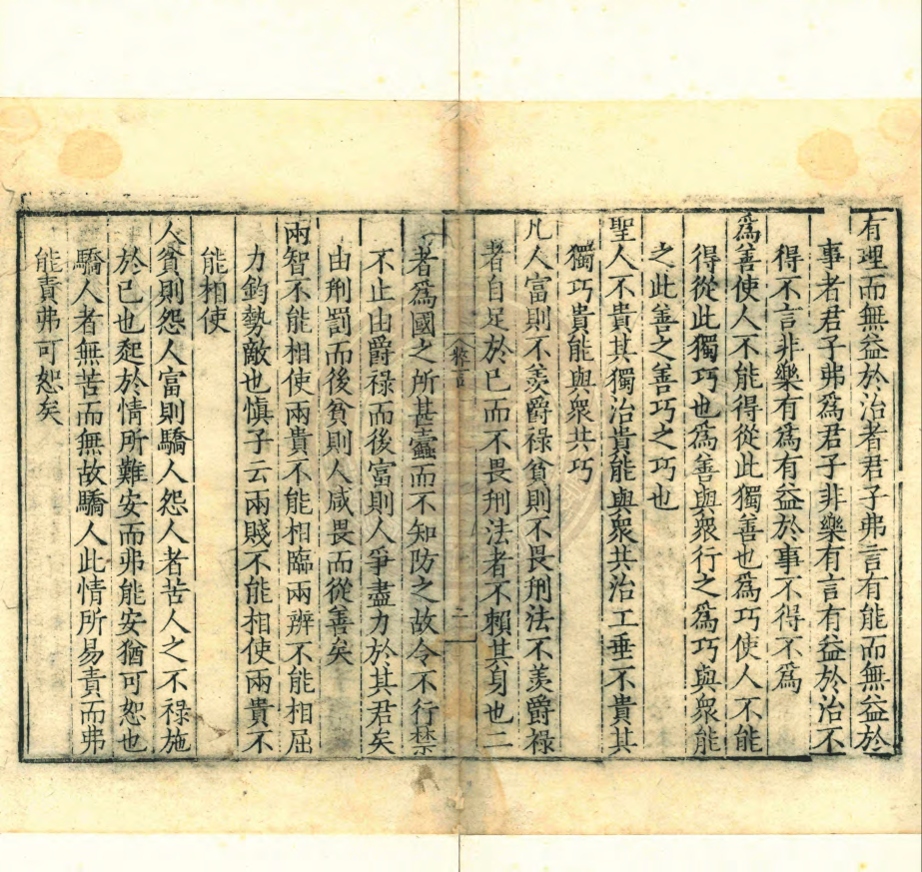 有理而無益於治者君子弗言有能而無益於
事者君子弗爲君子非樂有言有益於治不
得不言非樂有爲有益於事不得不爲
爲善使人不能得從此獨善也爲巧使人不能
得從此獨巧也爲善與衆行之爲巧與衆能
之此善之善巧之巧也
聖人不貴其獨治貴能與衆共治工垂不貴其
獨巧貴能與衆共巧
凡人富則不羨爵禄貧則不畏刑法不羨爵禄
者自足於己而不畏刑法者不賴其身也二
二
者爲國之所甚蠹而不知防之故令不行禁
不止由爵禄而後富則人爭盡力於其君矣
由刑罰而後貧則人咸畏而從善矣
兩智不能相使兩貴不能相臨兩辨不能相屈
力鈞勢敵也慎子云兩賤不能相使兩貴不
能相使
人貧則怨人富則驕人怨人者苦人之不禄施
於己也起於情所難安而弗能安猶可恕也
驕人者無苦而無故驕人此情所易責而弗
能責弗可恕矣